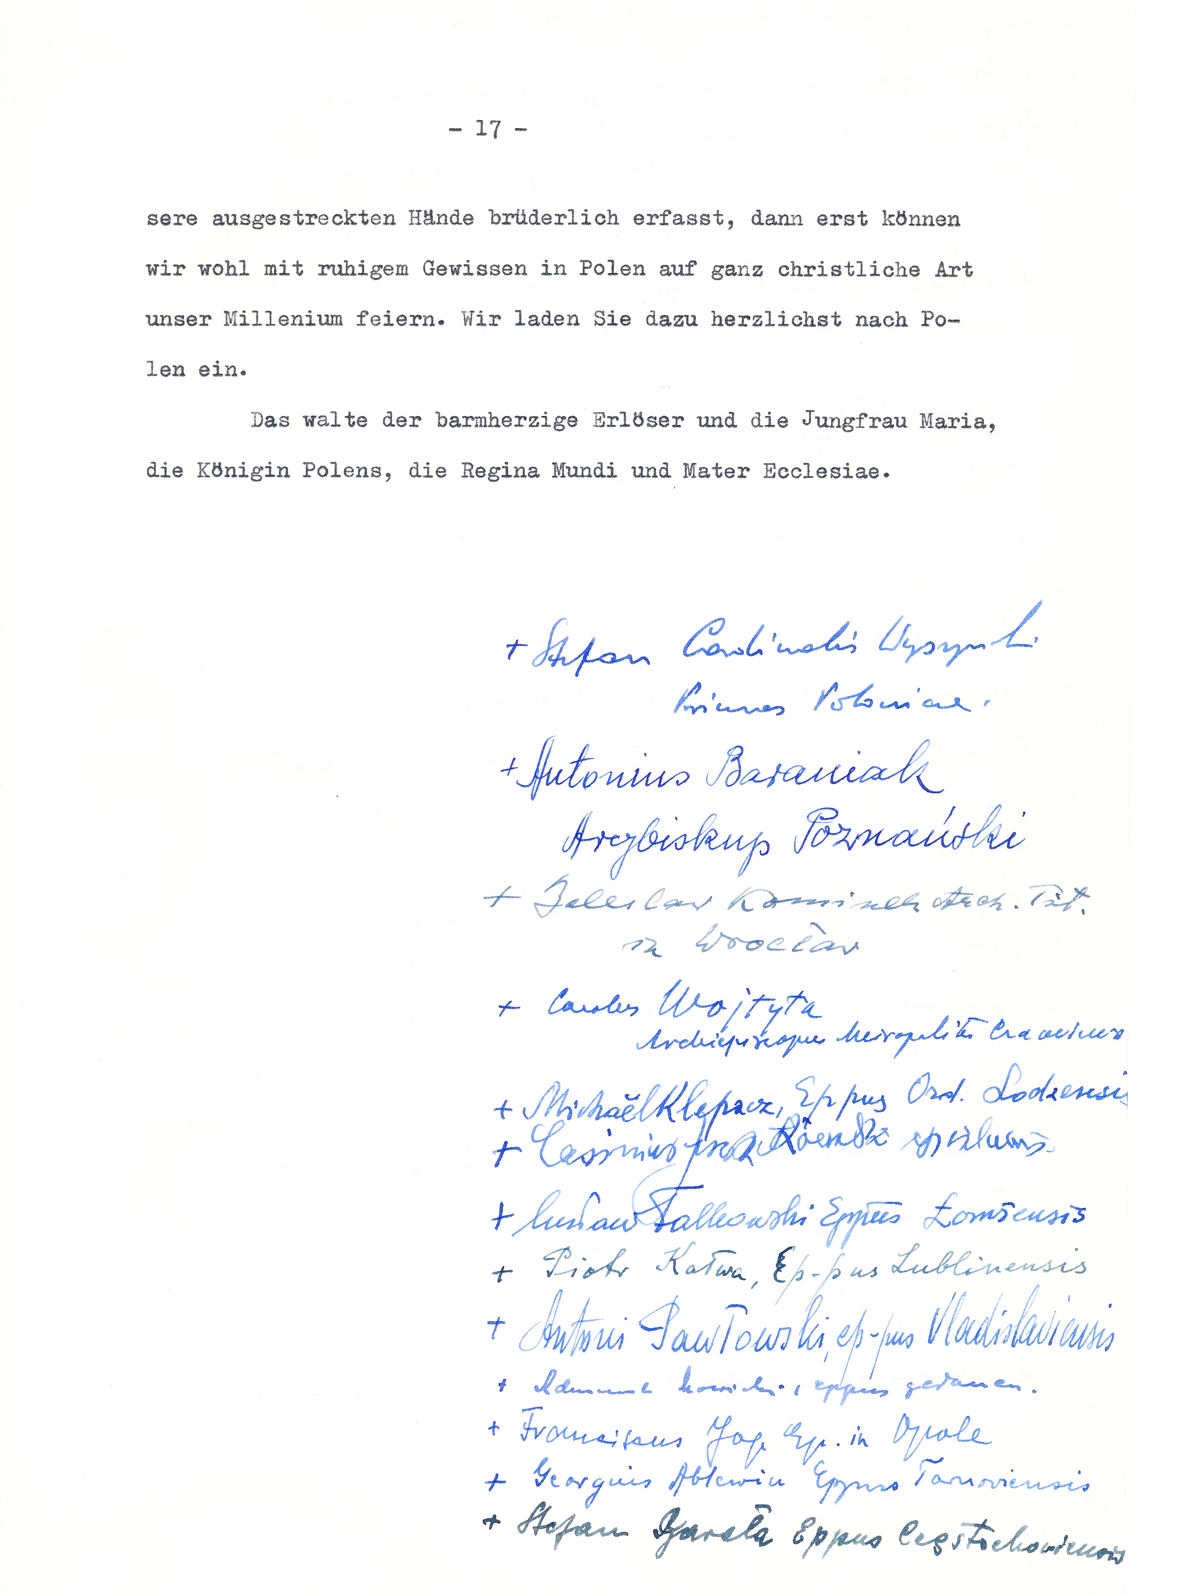 - 17 -
sere ausgestreckten Hände brüderlich erfasst, dann erst können
wir wohl mit ruhigem Gewissen in Polen auf ganz christliche Art
unser Millenium feiern. Wir laden Sie dazu herzlichst nach Po-
len ein.
Das walte der barmherzige Erlöser und die Jungfrau Maria,
die Königin Polens, die Regina Mundi und Mater Ecclesiae.
+ Stefan Cardinalis Wyszyński
Primas Poloniae.
+ Antonius Baraniak
Arcybiskup Poznański
+ Boleslaw Kominek Arch. Tit.
in Wrocław
+ Carolus Wojtyła
Archiepiscopus Metropolita Cracoviensis
+ Michaël Klepacz, Eppus Ord. Lodzensis
+ Casimirus
+ Czesław Falkowski Eppus Łomżensis
+ Piotr Kałwa, Ep-pus Lublinensis
+ Antoni Pawłowski, ep-pus Vladislaviensis
+ Edmund Nowicki, eppus gedanen.
+ Franciscus Jop Ep. in Opole
+ Georgius Ablewicz Eppus Tarnoviensis
+ Stefan Bareła Eppus Częstochoviensis